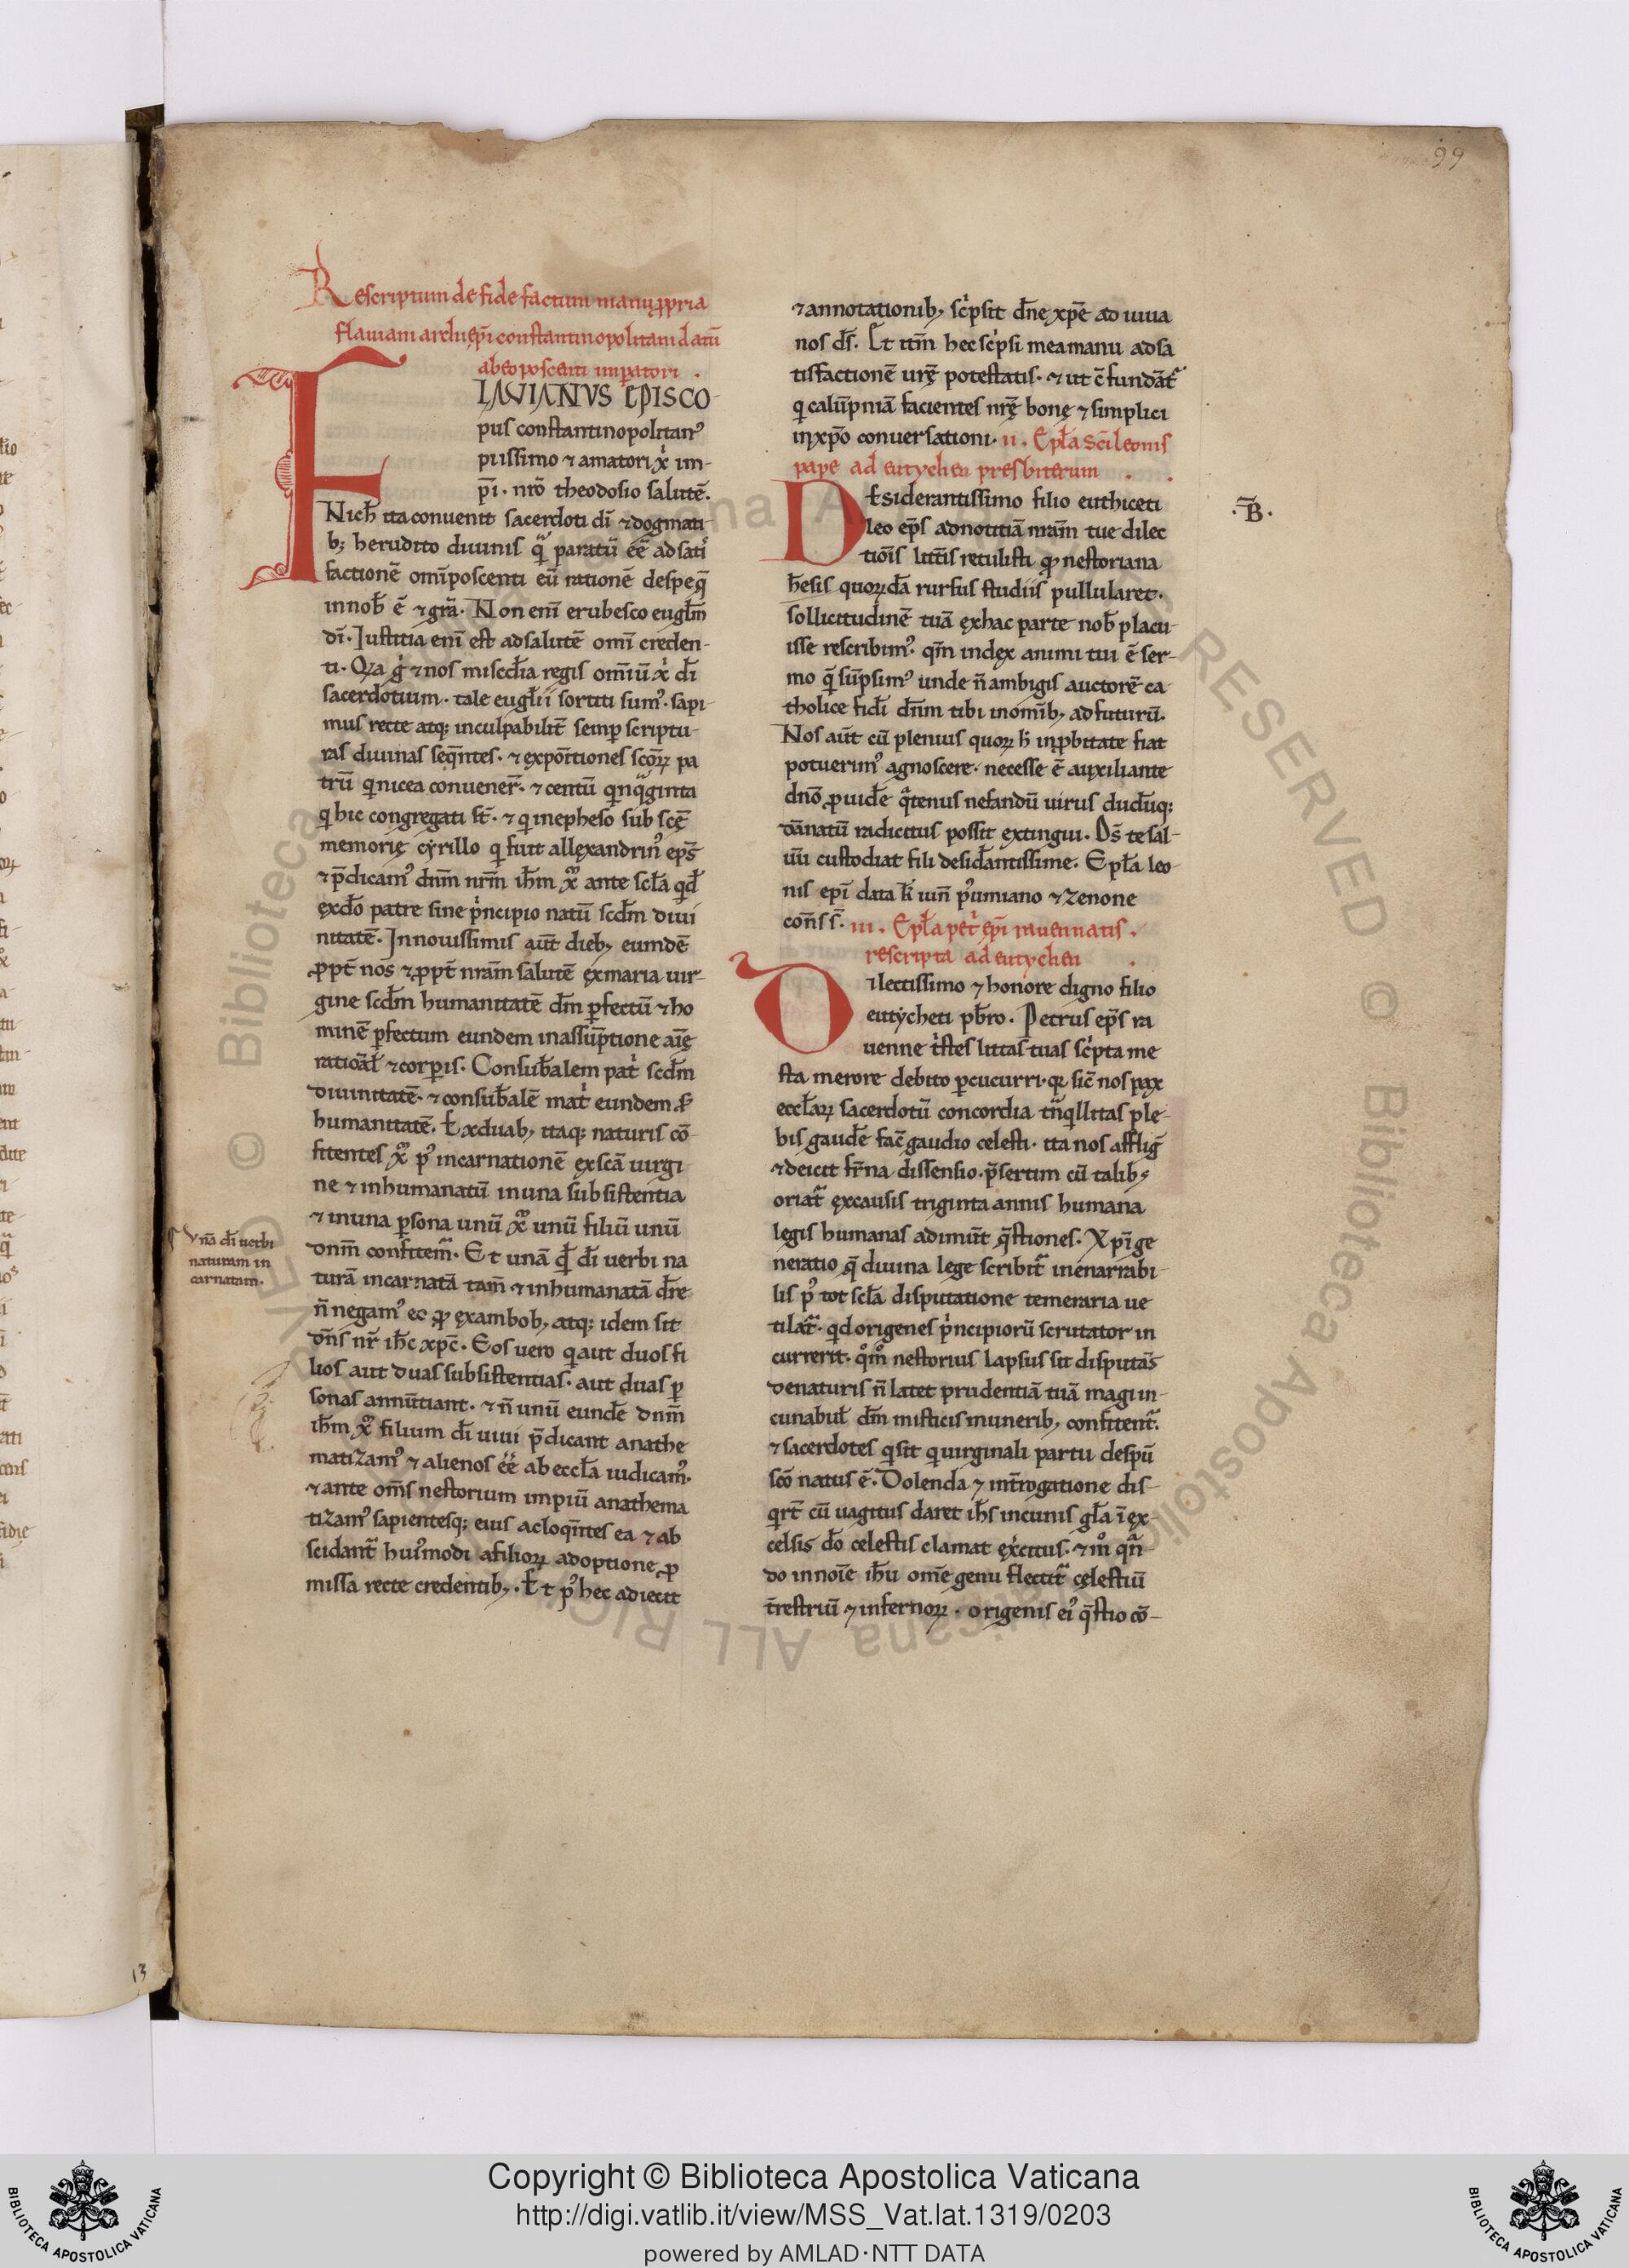 99
Rescriptum de fide factum manu ꝓpria
flauiani archiep̄i constantinopolitani datū
ab eo poscenti imꝑatori .
FLAVIANVS EPISCO-
pus constantinopolitanꝰ
piissimo ⁊ amatori x̄ im-
p̄i. nr̄o theodosio salutē.
Nich̄ ita conuenit sacerdoti dī ⁊ dogmati
b; herudito diuinis q̄ paratū ēē ad sati
factionē om̄i poscenti eū rationē de speq̄
in nob̄ ē ⁊ gr̄a. Non enī erubesco eugl̄m
dī. Iustitia enī est ad salutē om̄i creden-
ti. Qꝛa g̊ ⁊ nos misc̄dia regis om̄iū x̄ dī
sacerdotium. tale eugl̄ii sortiti sumꝰ. sapi
mus recte atq; inculpabilit̄ semꝑ scriptu-
ras diuinas seq̄ntes. ⁊ expōitiones sc̄oꝝ pa
trū q nicea conuener̄. ⁊ centū qnq̄ginta
q hic congregati st̄. ⁊ q in epheso sub sc̄ę
memorię cyrillo q fuit allexandrinꝰ ep̄s
⁊ p̄dicamꝰ dn̄m nr̄m ih̄m x̄m ante scl̄a qd̄
ex do patre sine pͥncipio natū scd̄m diui
nitatē. In nouissimis aūt dieb, eumdē
ꝓpt̄ nos ⁊ ꝓpt̄ nr̄am salutē ex maria uir-
gine scd̄m humanitatē dm̄ ꝑfectū ⁊ ho
minē ꝑfectum eundem in assūptione aīę
ratioal̄ ⁊ corꝑis. Consub̄alem pat̄ scd̄m
diuinitatē. ⁊ consub̄alē mat̄ eundem s̄
humanitatē. Ex duab, itaq; naturis cō-
fitentes x̄m pꝰ incarnationē ex sc̄ā uirgi
ne ⁊ inhumanatū in una subsistentia
⁊ in una ꝑsona unū x̄m unū filiū unū
dn̄m confitem̄. Et unā qd̄ dī uerbi na
turā incarnatā tam̄ ⁊ inhumanatā dr̄e
n̄ negamꝰ eo ꝙ ex ambob, atq; idem sit
dn̄s nr̄ ih̄c xp̄c. Eos uero q aut duos fi
lios aut duas subsistentias. aut duas ꝑ
sonas annūtiant. ⁊ n̄ unū eundē dn̄m
ih̄m x̄m filium dī uiui p̄dicant anathe
matizamꝰ ⁊ alienos ēē ab eccl̄a iudicamꝰ.
⁊ ante om̄s nestorium impiū anathema
tizamꝰ sapientesq; eius ac loq̄ntes ea ⁊ ab
scidant̄ huiꝰmodi a filioꝝ adoptione ꝓ
missa recte credentib,. Et pꝰ hec adiecit
Vnā dī uerbi
naturam in
carnatam.
⁊ annotationib, scͥpsit dn̄e xp̄e ad iuua
nos ds̄. Et itm̄ hec scͥpsi mea manu ad sa
tisfactionē ur̄ę potestatis. ⁊ ut c̄fundāt̄
q calūpniā facientes nr̄ę bonę ⁊ simplici
in xp̄o conuersationi. ii. Epl̄a sc̄i leonis
pape ad eutychen presbiterum .
Desiderantissimo filio euthiceti
leo ep̄s ad notitiā nr̄am tue dilec
tiōis litt̄is retulisti ꝙ nestoriana
h̄esis quoꝝdā rursus studiis pullularet.
sollicitudinē tuā ex hac parte nob̄ placu
isse rescribimꝰ. qm̄ index animi tui ē ser-
mo q̄ sūpsimꝰ unde n̄ ambigis auctorē ca
tholice fidī dn̄m tibi in om̄ib, ad futurū.
Nos aūt cū plenius quoꝝ h̄ inꝓbitate fiat
potuerimꝰ agnoscere. necesse ē auxiliante
dn̄o ꝓuidē q̄tenus nefandū uirus dudūq;
dānatū radicitus possit extingui. Ds̄ te sal-
uū custodiat fili desid̄antissime. Epl̄a leo
nis ep̄i data k̄ iun̄ pꝰumiano ⁊ zenone
con̄s s̄. iii. Epl̄a pet̄ ep̄i rauennatis.
rescripta ad eutychen .
Dilectissimo ⁊ honore digno filio
eutycheti pb̄ro. Petrus ep̄s ra
uenne tͥstes litt̄as tuas scͥpta me
sta merore debito ꝑcucurri. qꝛ sic̄ nos pax
eccl̄aꝝ sacerdotū concordia tn̄qllitas ple-
bis gaudē fac̄ gaudio celesti. ita nos affliḡ
⁊ deicit fr̄na dissensio. p̄sertim cū talib;
oriat̄ ex causis triginta annis humana
legis humanas adimūt q̄stiones. Xp̄i ge
neratio q̄ diuina lege scribit̄ inenarrabi-
lis pꝰ tot scl̄a disputatione temeraria ue
tilat̄. qd origenes pͥncipiorū scrutator in
currerit. qm̊ nestorius lapsus sit disputās
de naturis n̄ latet prudentiā tuā magi in-
cunabul̄ dm̄ misticis munerib, confitent̄.
⁊ sacerdotes q sit q uirginali partu de spū
sc̄o natus ē. Dolenda ⁊ int̄rogatione dis-
qrt̄ cū uagitus daret ih̄s in cunis gl̄a ī ex-
celsis do celestis clamat exͥcitus. ⁊ m̊ qn̄
do in noīe ih̄u om̄e genu flectit̄ celestiū
t̄restriū ⁊ infernoꝝ. origenis eiꝰ q̄stio cō-
.B̄.
13
Copyright © Biblioteca Apostolica Vaticana
http://digi.vatlib.it/view/MSS_Vat.lat.1319/0203
powered by AMLAD·NTT DATA